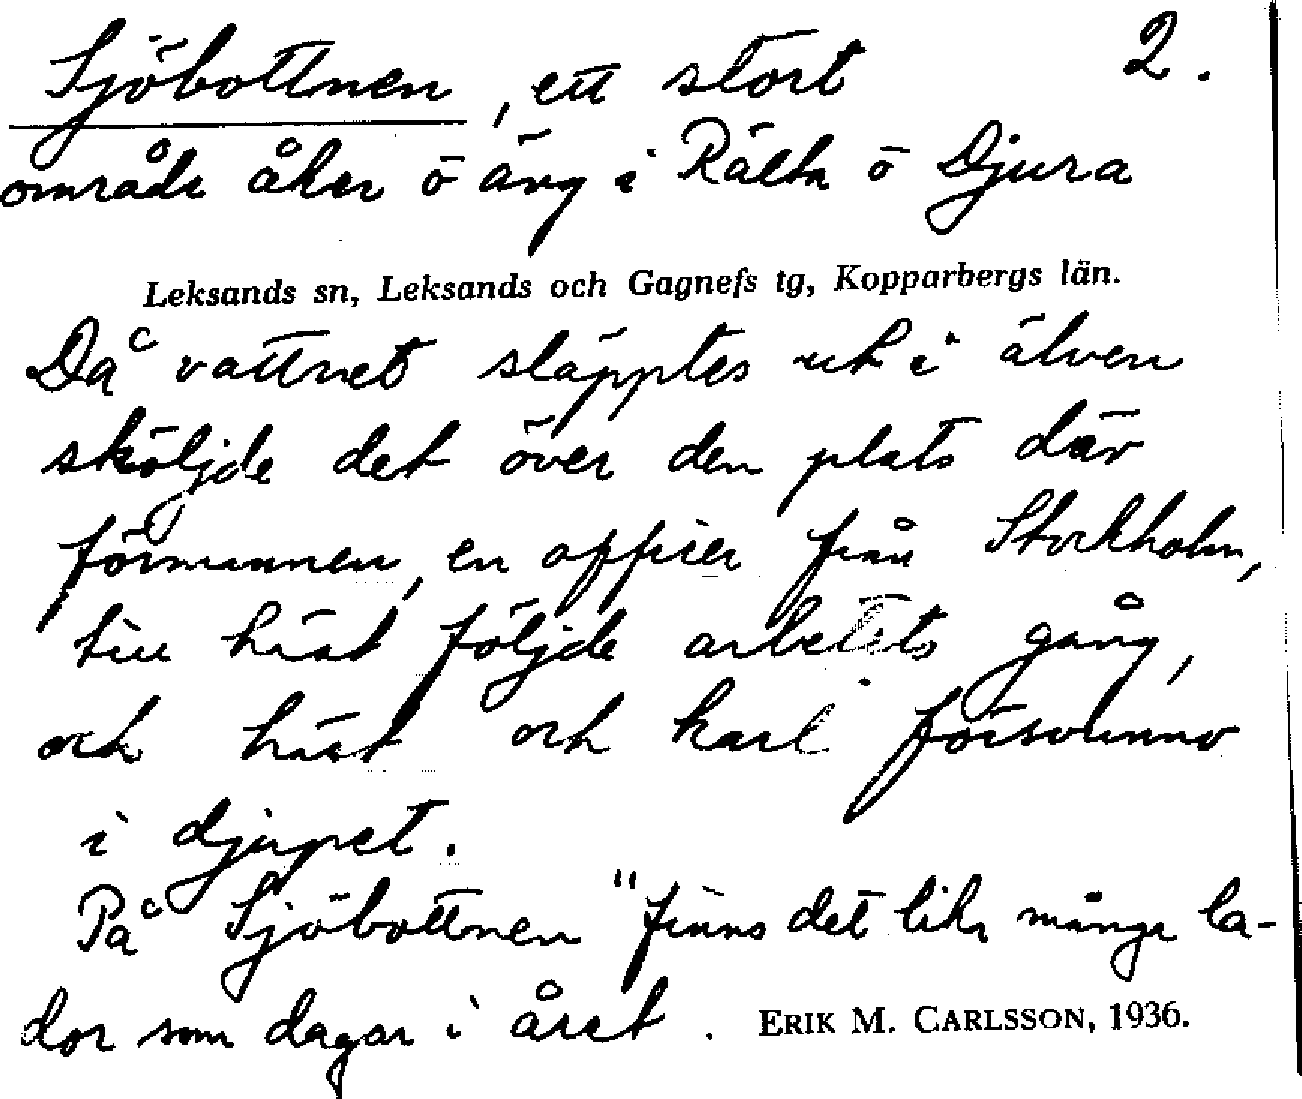 Sjöbottnen, ett stort 2.
område åker o äng i Rälta o Djura
Leksands sn, Leksands och Gagnefs tg, Kopparbergs län.
Då vattnet släpptes ut i älven
sköljde det över den plats där
förmannen, en officer från Stockholm,
till häst följde arbetets gång,
och häst och karl försvunno
i djupet.
På Sjöbottnen "finns det lika många la-
dor som dagar i året. ERIK M. CARLSSON, 1936.